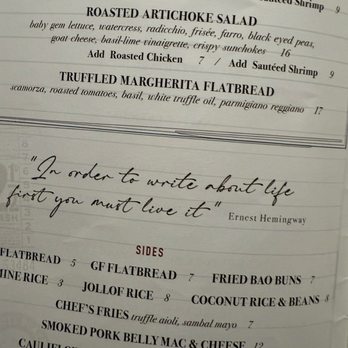 Sautéed Shrimp 9
ROASTED ARTICHOKE SALAD
baby gem lettuce, watercress, radicchio, frisée, farro, black eyed peas,
goat cheese, basil-lime vinaigrette, crispy sunchokes 16
Add Roasted Chicken 7 / Add Sautéed Shrimp 9
TRUFFLED MARGHERITA FLATBREAD
scamorza, roasted tomatoes, basil, white truffle oil, parmigiano reggiano 17
"In order to write about life
first you must live it" Ernest Hemingway
SIDES
FLATBREAD 5 GF FLATBREAD 7 FRIED BAO BUNS 7
RICE 5 JOLLOF RICE 8 COCONUT RICE & BEANS 8
CHEF'S FRIES truffle aioli, sambal mayo 7
SMOKED PORK BELLY MAC & CHEESE 12